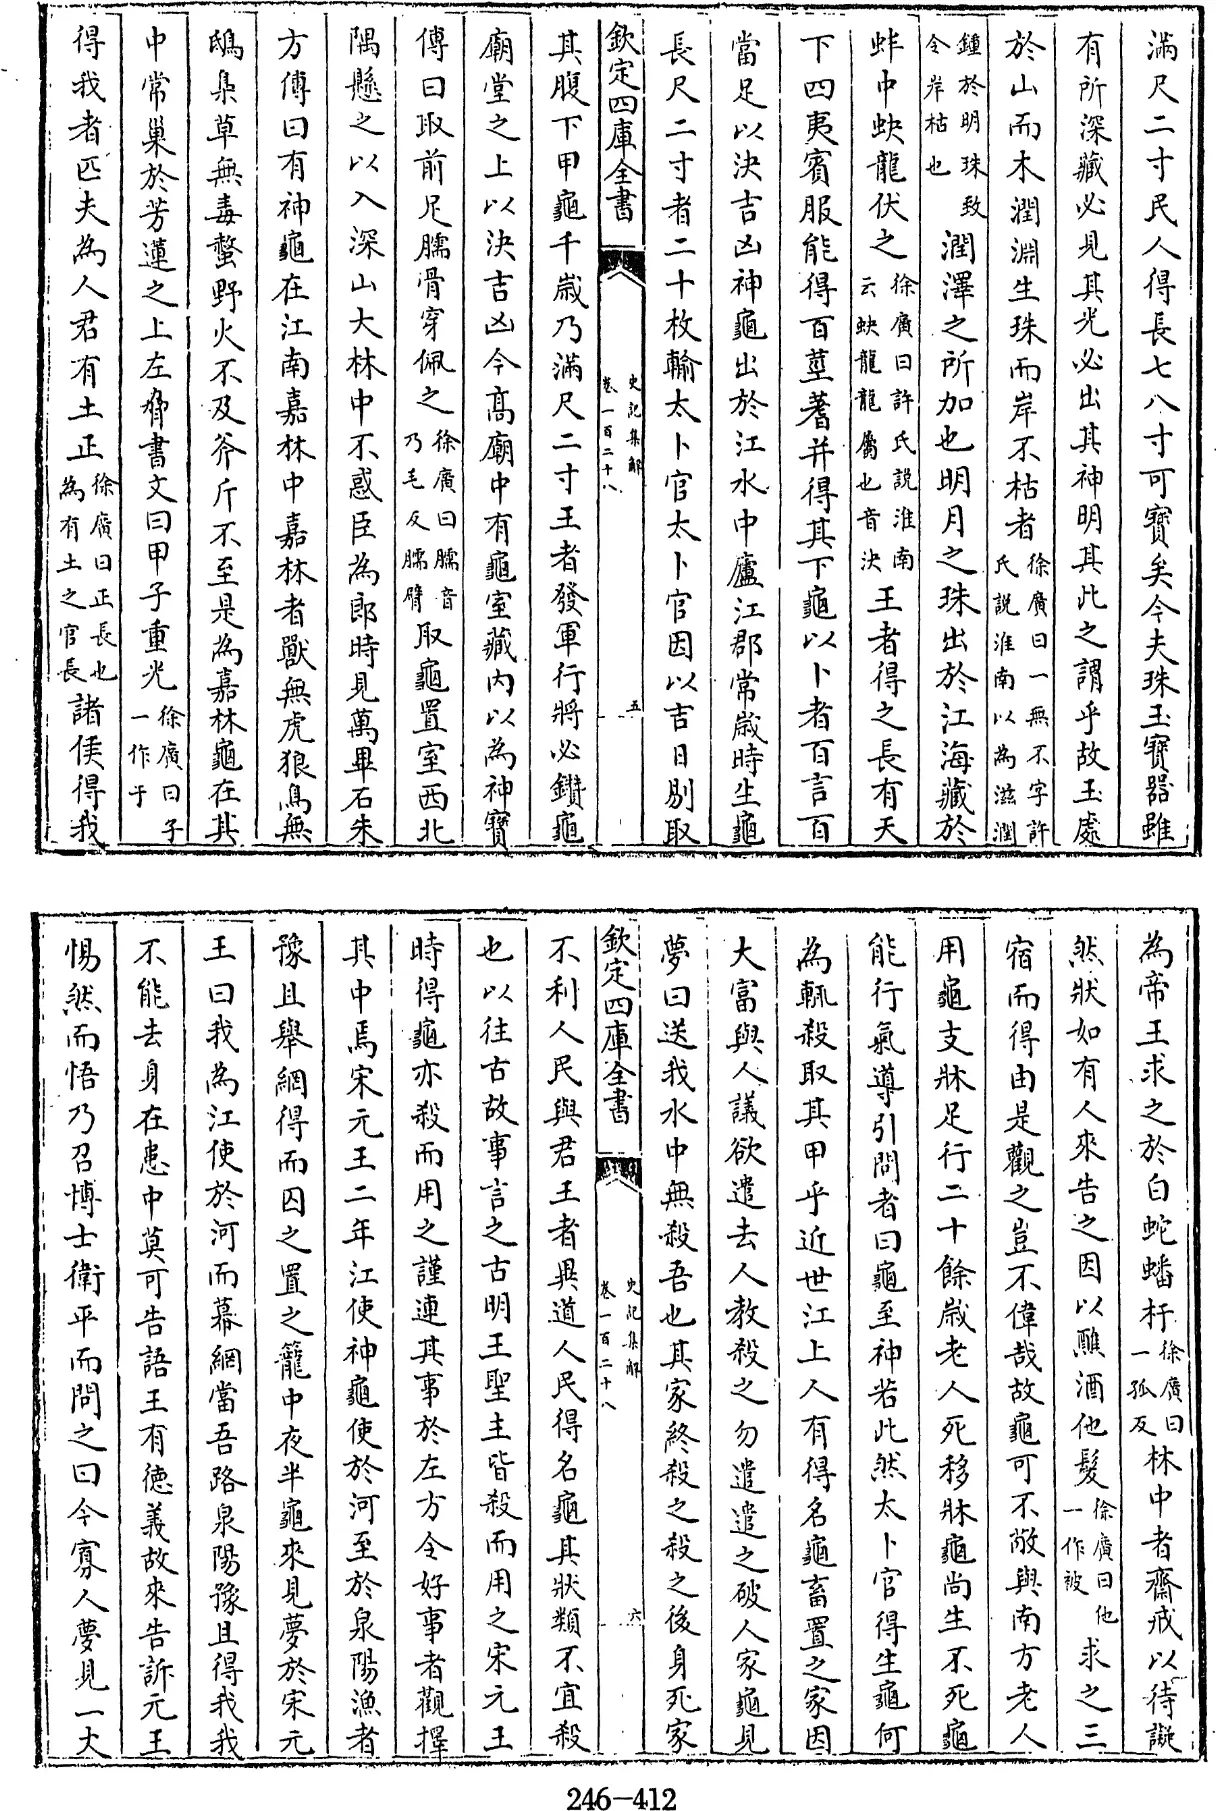 滿尺二寸民人得長七八寸可寶矣今夫珠玉寶器雖
有所深藏必見其光必出其神明其此之謂乎故玉處
於山而木潤淵生珠而岸不枯者徐廣曰一無不字許氏說淮南以為滋潤
鍾於明珠致令岸枯也潤澤之所加也明月之珠出於江海藏於
蚌中蚗龍伏之徐廣曰許氏說淮南云蚗龍龍屬也音決王者得之長有天
下四夷賓服能得百莖蓍并得其下龜以卜者百言百
當足以決吉凶神龜出於江水中廬江郡常歲時生龜
長尺二寸者二十枚輸太卜官太卜官因以吉日剔取
欽定四庫全書 史記集解 卷一百二十八 五
其腹下甲龜千歲乃滿尺二寸王者發軍行將必鑽龜
廟堂之上以決吉凶今髙廟中有龜室藏内以為神寶
傳曰取前足臑骨穿佩之徐廣曰臑音乃毛反臑臂取龜置室西北
隅懸之以入深山大林中不惑臣為郎時見萬畢石朱
方傳曰有神龜在江南嘉林中嘉林者獸無虎狼鳥無
鴟梟草無毒螫野火不及斧斤不至是為嘉林龜在其
中常巢於芳蓮之上左脅書文曰甲子重光徐廣曰子一作于
得我者匹夫為人君有土正徐廣曰正長也為有土之官長諸侯得我
為帝王求之於白蛇蟠杅徐廣曰一孤反林中者齋戒以待譺
然狀如有人來告之因以醮酒佗髮徐廣曰佗一作被求之三
宿而得由是觀之豈不偉哉故龜可不敬與南方老人
用龜支牀足行二十餘歲老人死移牀龜尚生不死龜
能行氣導引問者曰龜至神若此然太卜官得生龜何
為輒殺取其甲乎近世江上人有得名龜畜置之家因
大富與人議欲遣去人教殺之勿遣遣之破人家龜見
夢曰送我水中無殺吾也其家終殺之殺之後身死家
欽定四庫全書 史記集解 卷一百二十八 六
不利人民與君王者異道人民得名龜其狀類不宜殺
也以往古故事言之古明王聖主皆殺而用之宋元王
時得龜亦殺而用之謹連其事於左方令好事者觀擇
其中焉宋元王二年江使神龜使於河至於泉陽漁者
豫且舉網得而囚之置之籠中夜半龜來見夢於宋元
王曰我為江使於河而幕網當吾路泉陽豫且得我我
不能去身在患中莫可告語王有德義故來告訴元王
惕然而悟乃召博士衛平而問之曰今寡人夢見一丈
246-412